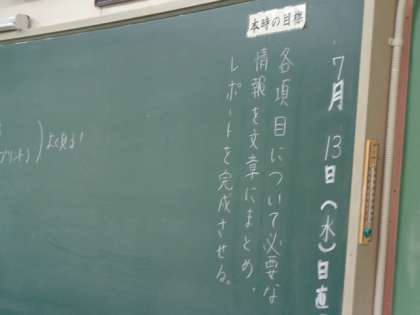 7月13日(水)日直
本時の目標
各項目について必要な
情報を文章にまとめ、
レポートを完成させる。
よく見る!
プリント)